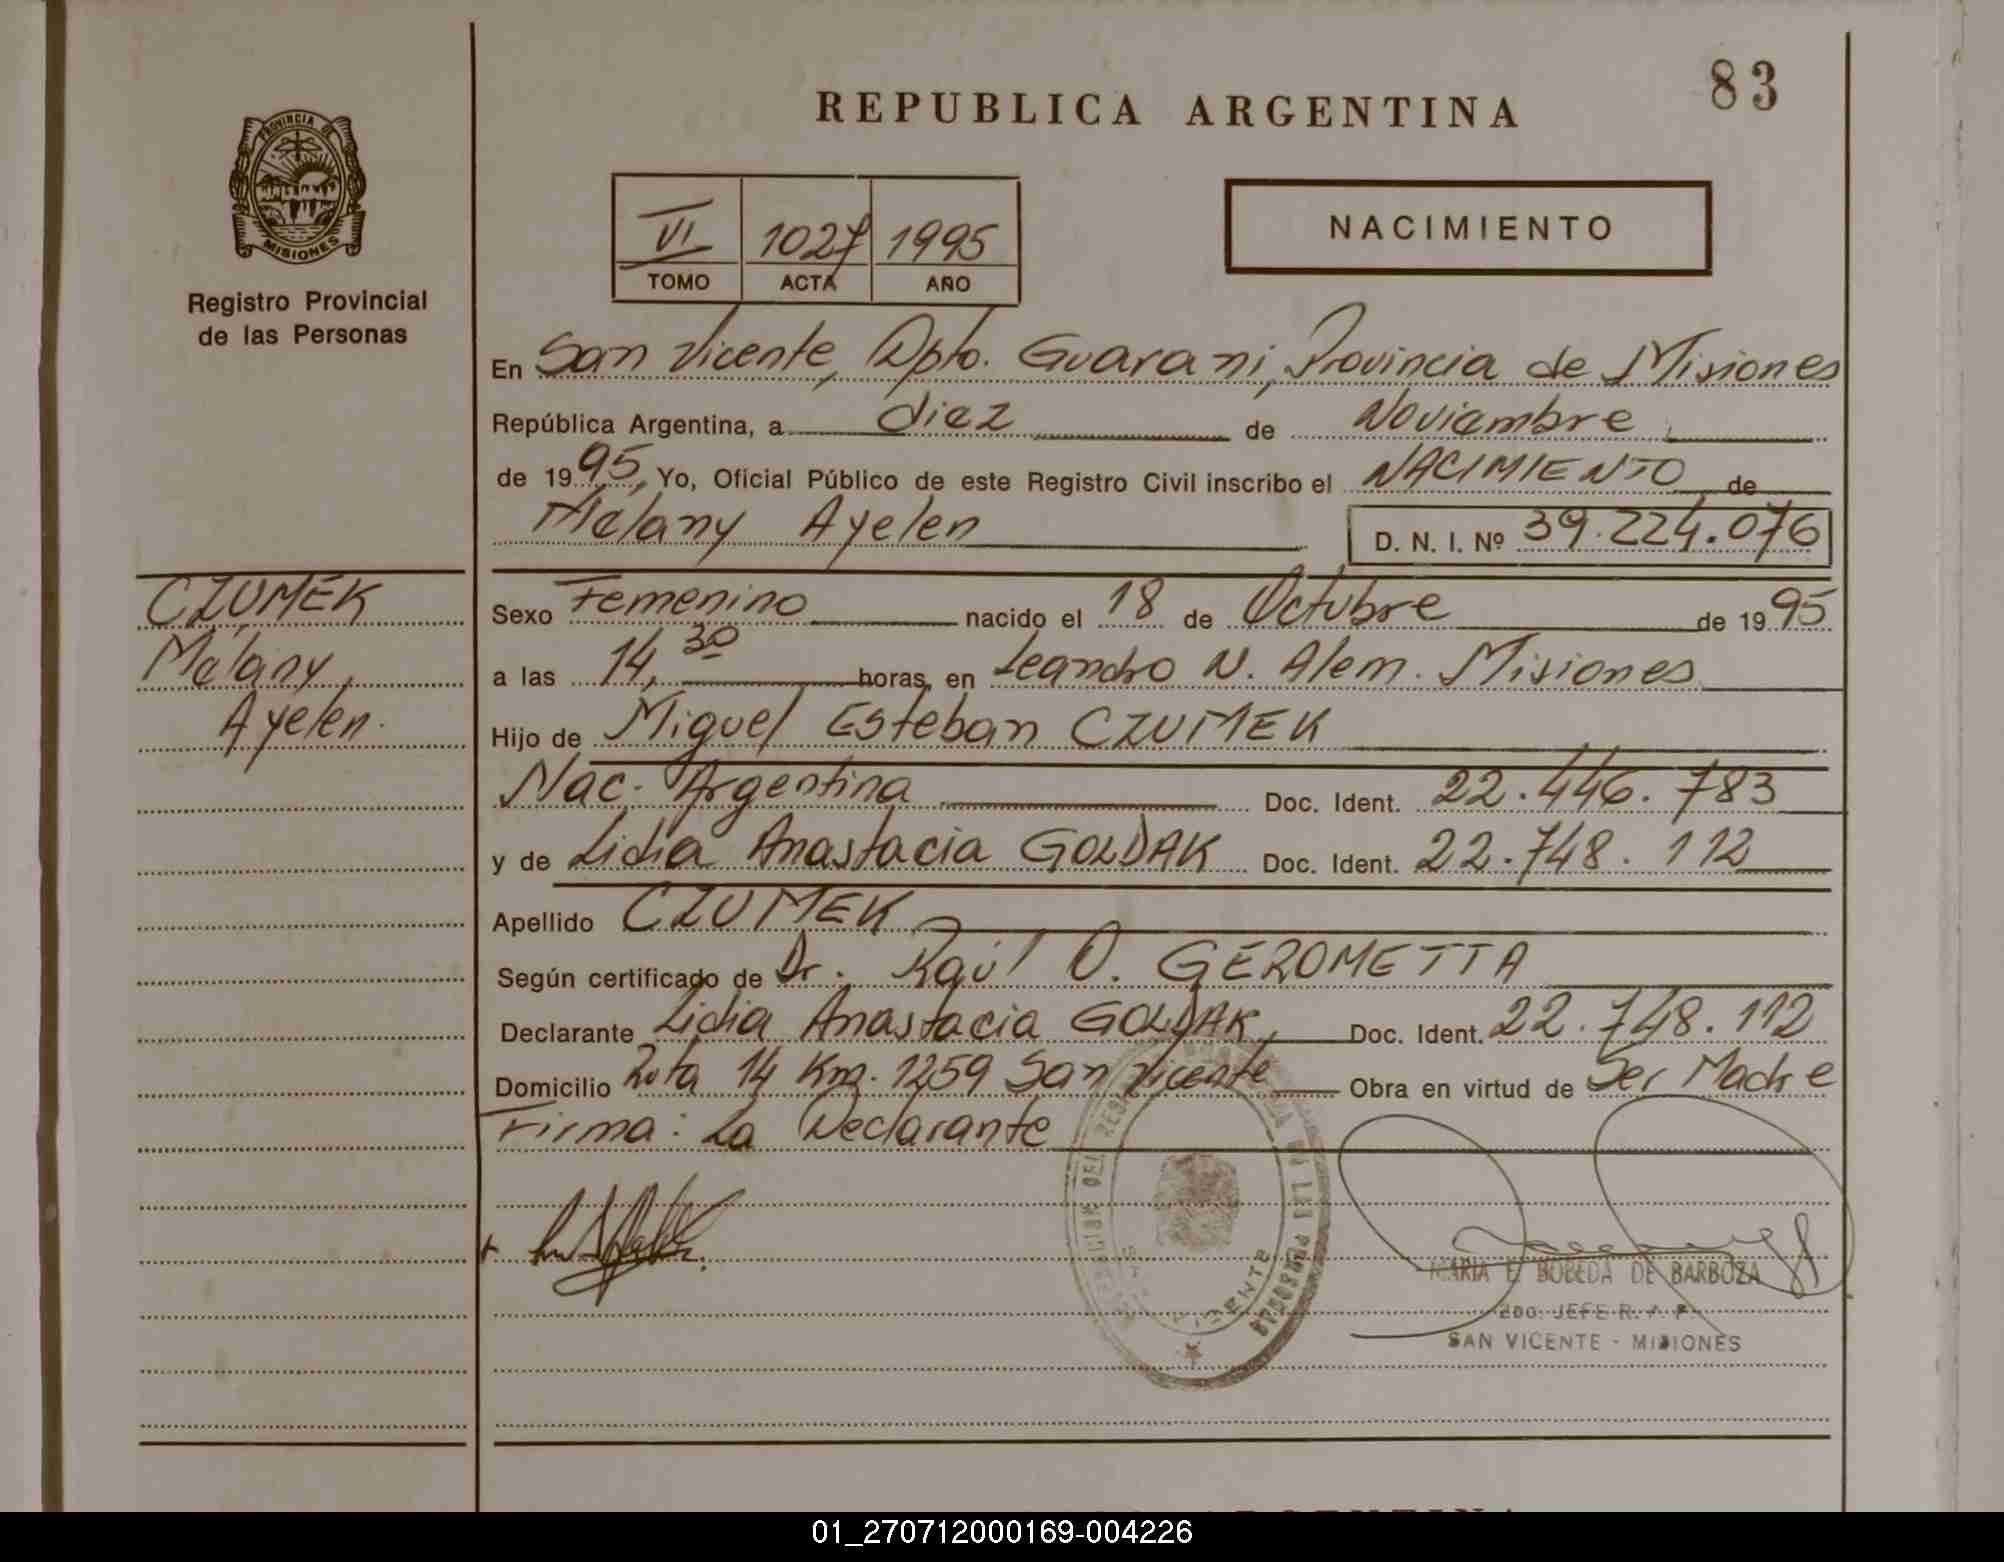 83
REPUBLICA ARGENTINA
PROVINCIA DE
MISIONES
Registro Provincial
de las Personas
VI 1027 1995
TOMO ACTA AÑO
NACIMIENTO
En San Vicente, Dpto. Guarani, Provincia de Misiones
República Argentina, a diez de Noviembre
de 1995, Yo, Oficial Público de este Registro Civil inscribo el NACIMIENTO de
Melany Ayelen D. N. I. Nº 39.224.076
CZUMEK
Melany,
Ayelen.
Sexo Femenino nacido el 18 de Octubre de 1995
a las 14,30 horas, en Leandro N. Alem. Misiones
Hijo de Miguel Esteban CZUMEK
Nac. Argentina Doc. Ident. 22.446.783
y de Lidia Anastacia GOLDAK Doc. Ident. 22.748.112
Apellido CZUMEK
Según certificado de Dr. Raúl O. GEROMETTA
Declarante Lidia Anastacia GOLDAK, Doc. Ident. 22.748.112
Domicilio Ruta 14 Km. 1259 San Vicente Obra en virtud de Ser Madre
Firma: La Declarante
MARIA E. BOBEDA DE BARBOZA
2do. JEFE R. P. P.
SAN VICENTE - MISIONES
01_270712000169-004226